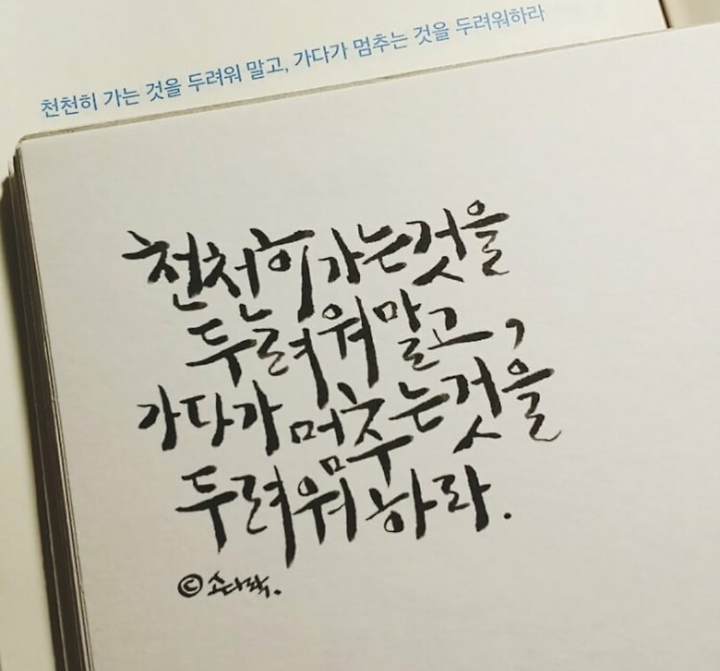 천천히 가는 것을 두려워 말고, 가다가 멈추는 것을 두려워하라
천천히 가는것을
두려워 말고,
가다가 멈추는것을
두려워하라.
©